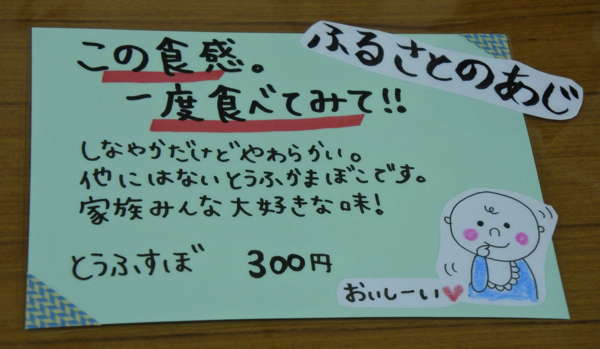 ふるさとのあじ
この食感。
一度食べてみて!!
しなやかだけどやわらかい。
他にはないとうふかまぼこです。
家族みんな大好きな味!
とうふすぼ 300円
おいしーい